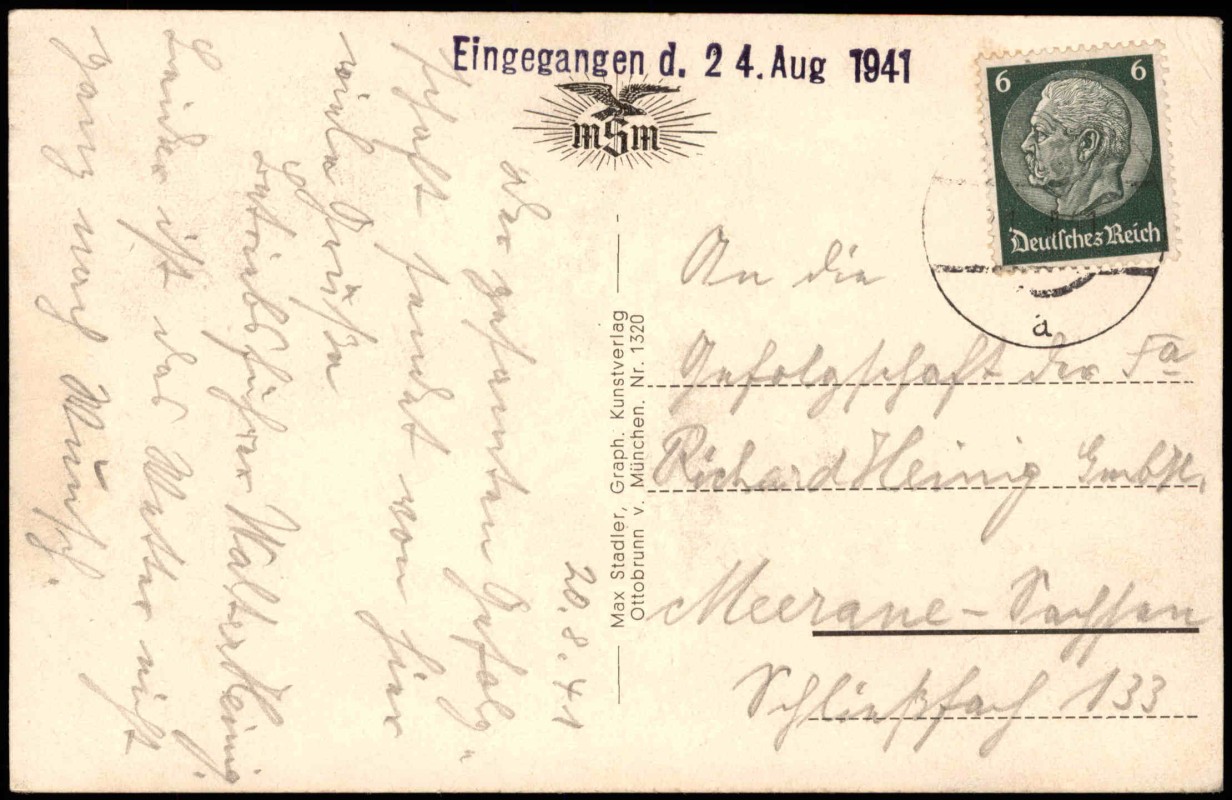 Eingegangen d. 24. Aug 1941
mSm
6 6
Deutsches Reich
a
20.8.41
Der gesamten Gefolg-
schaft sendet von hier
viele Grüße
Betriebsführer Walter Heinig.
Leider ist das Wetter nicht
ganz nach Wunsch.
Max Stadler, Graph. Kunstverlag
Ottobrunn v. München. Nr. 1320
An die
Gefolgschaft der Fa
Richard Heinig GmbH.
Meerane - Sachsen
Schließfach 133